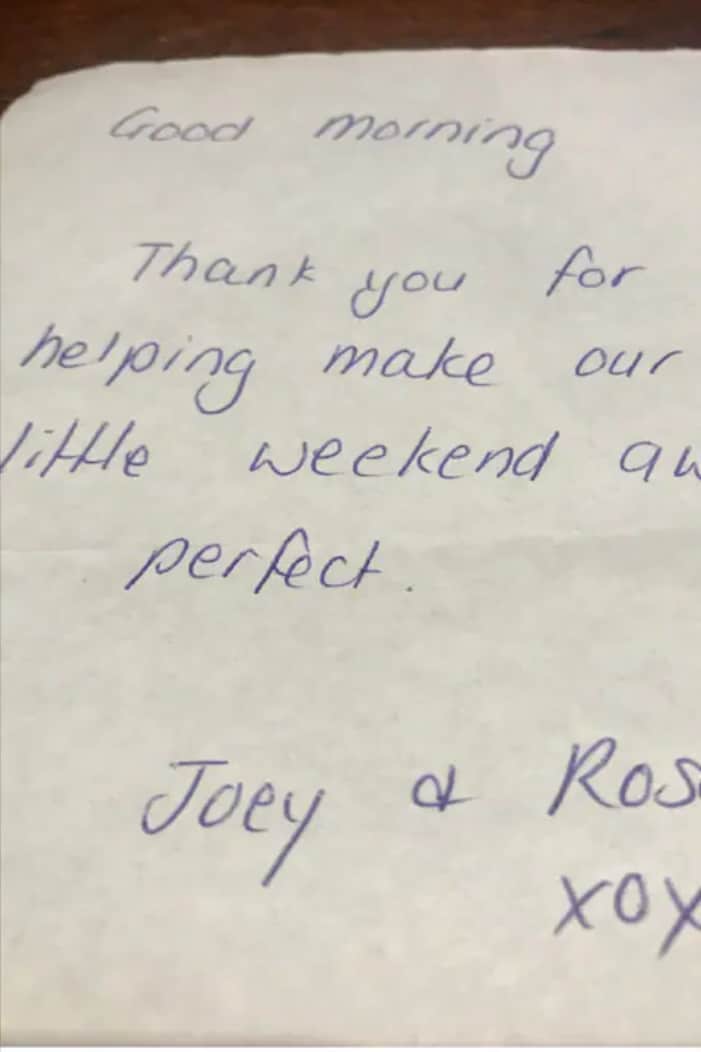 Good morning
Thank you for
helping make our
little weekend
perfect.
Joey &
xox